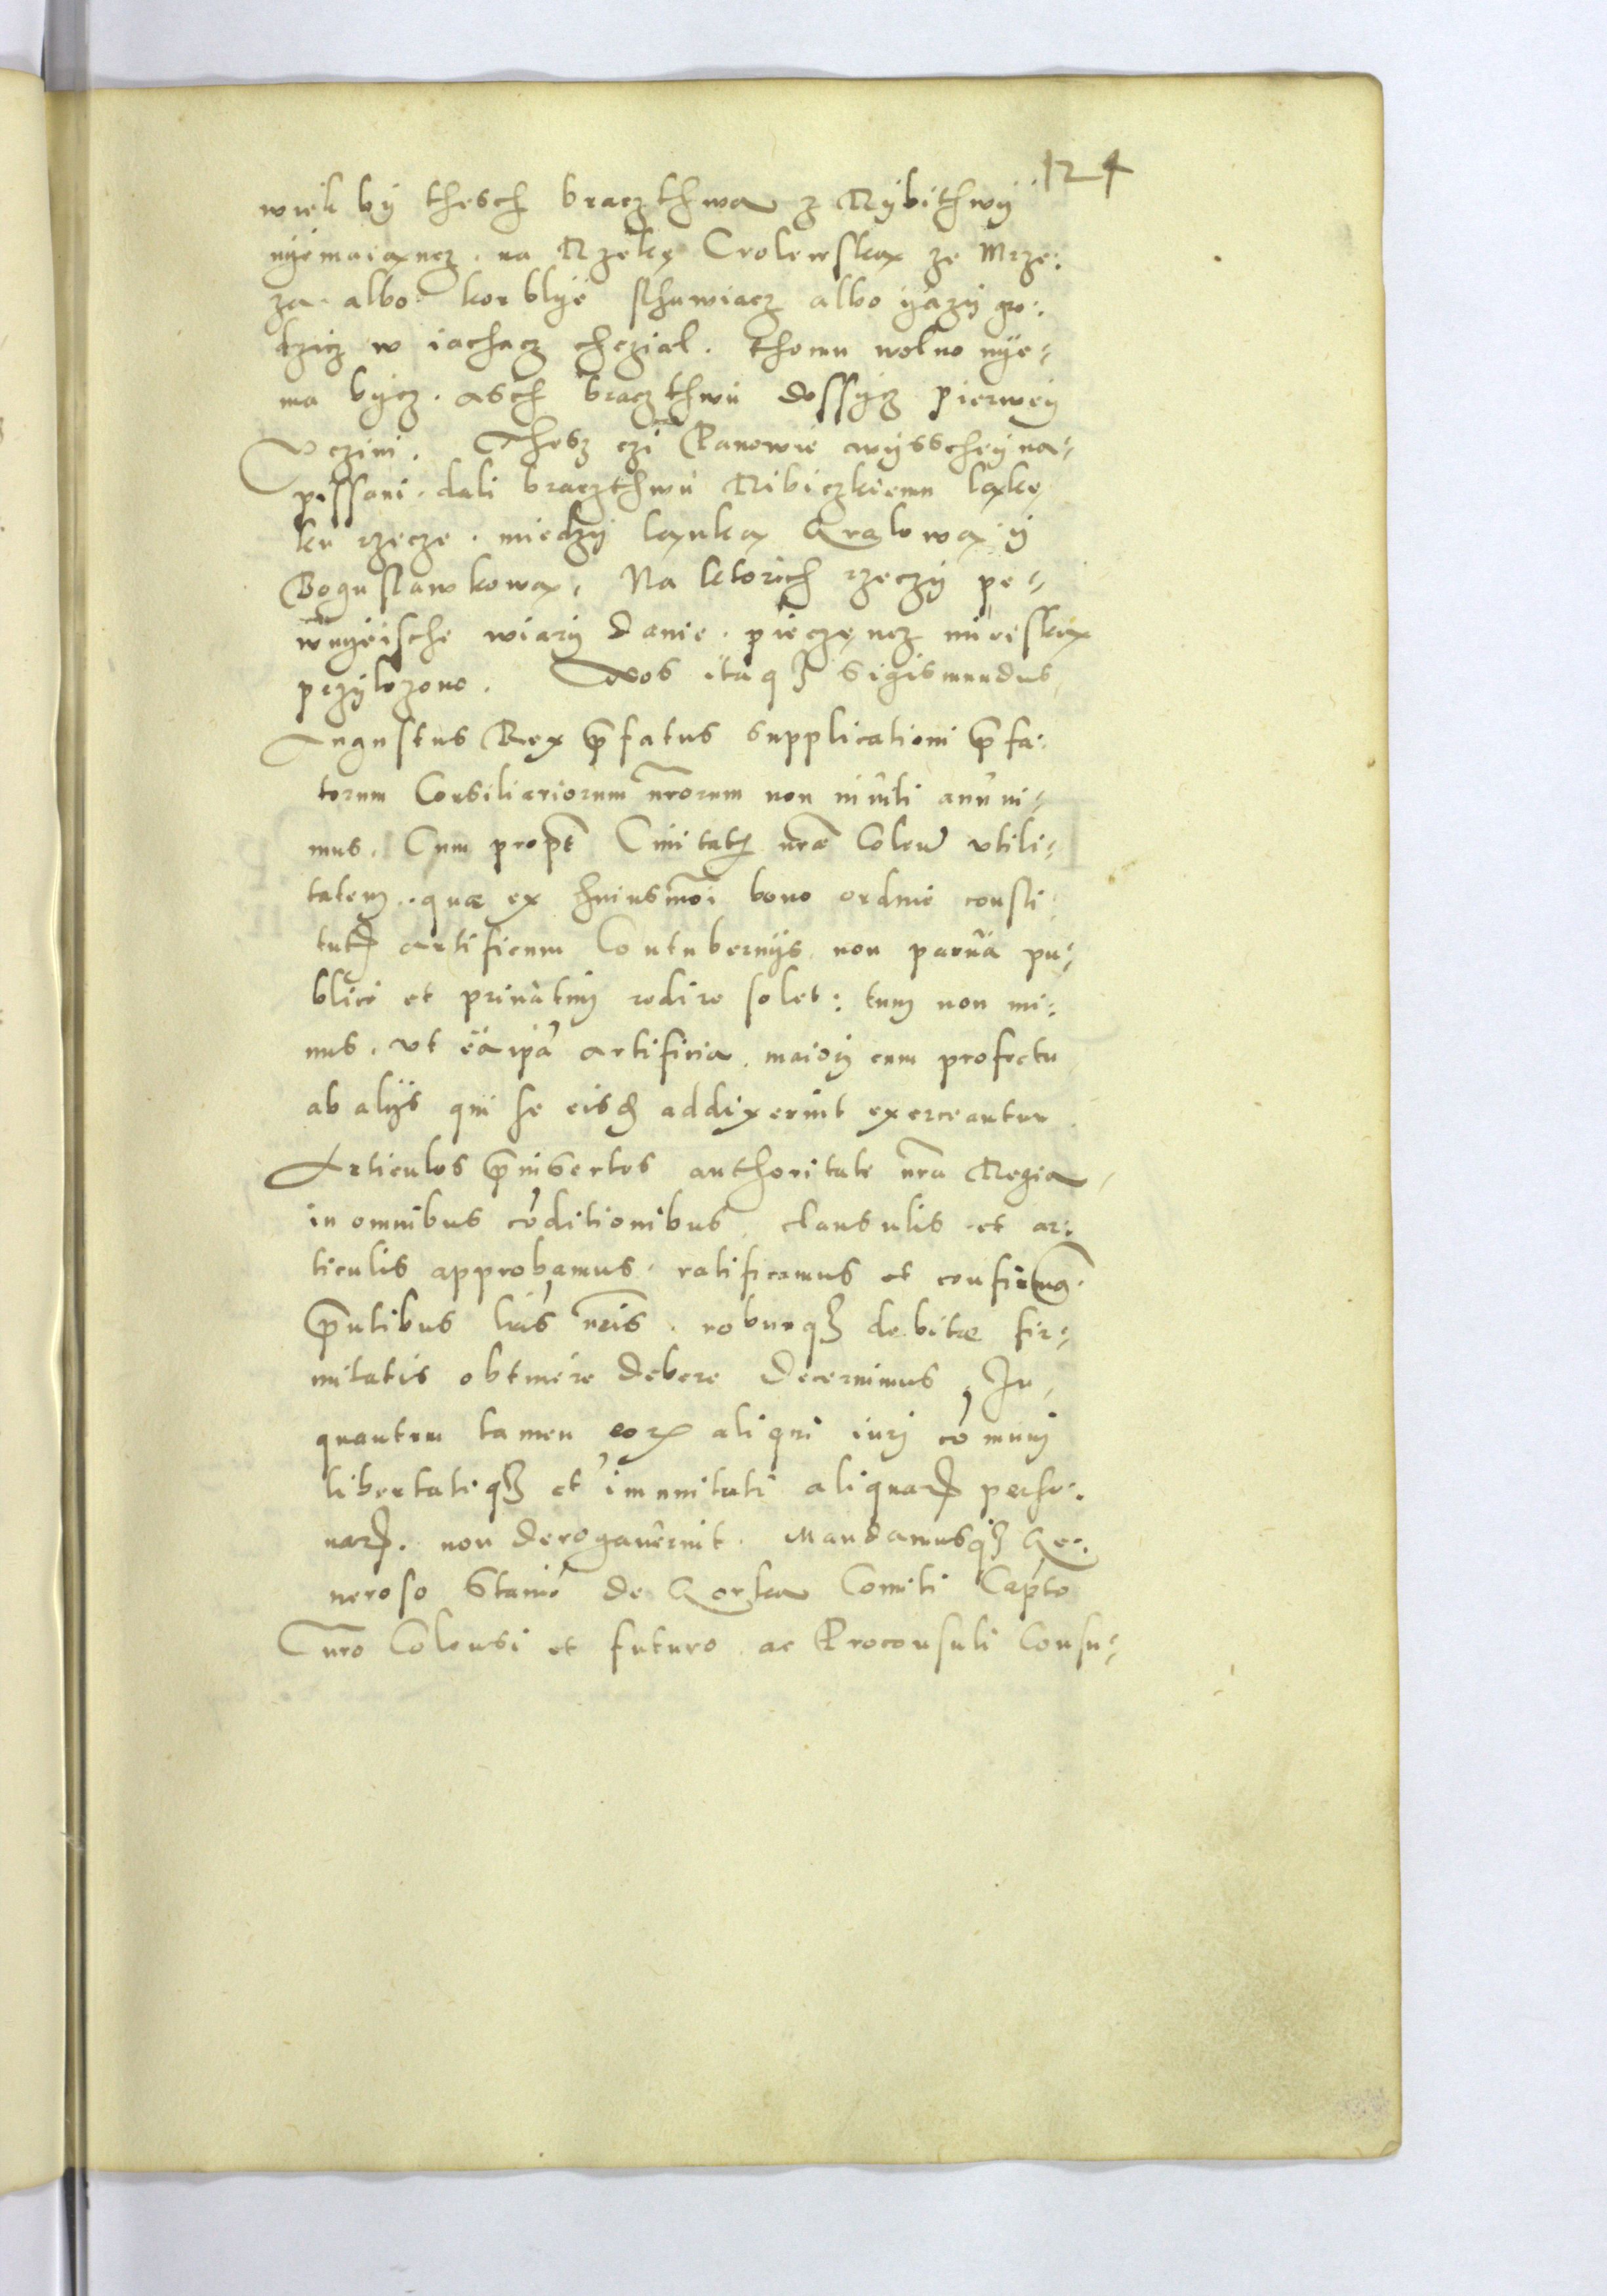 124
wiek by thesch braczthwa z Rybithwy
nyemaiaxncz . na Rzekę Crolewskax ze Mrze:
za albo korblye sthawiacz albo yazy gro:
dzicz w iachacz chczial . thomu wolno nye:
ma bycz . asch braczthwu dossycz pierwey
Vczini . Thesz czi Panowie wyssschey na:
pissani . dali braczthwu Ribiczkiemu laxkę
ku rzecze . miedzy laxnkax Gralowax y
Boguslawkowax , Na ktorich rzeczy pe:
wnyeische wiary danie . pieczęncz mieiskax
przylozono . Nos itaqȝ Sigismundus
Augustus Rex p̄fatus supplicationi p̄fa:
torum Consiliariorum nr̄orum non inuiti annui:
mus . Cum propt Ciuitatꝭ nr̄ae Colen̄ vtili:
tatem . quae ex huiusmōi bono ordine consti:
tutꝭ artificum Contubernijs non parua pu:
blice et priuatim redire solet : tum non mi:
nus . vt ea ip̄a artificia . maiorj cum profectu
ab alijs qui se eisd̄ addixerint exerceantur
Articulos p̄insertos authoritate nr̄a Regia
in omnibus cōditionibus , clausulis et ar:
ticulis approbamus . ratificamus et confirmam̄ .
p̄ntibus lr̄is nr̄is . roburqȝ debitae fir:
mitatis obtinere debere decernimus , In
quantum tamen eoꝝ aliqui iurj cōmunj
libertatiqȝ et im̄unitati aliquaꝝ perso:
naꝝ . non derogauerint . Mandamusqȝ Ge:
neroso Stanis̄ de Gorka Comiti Capt̄o
nr̄o Colensi et futuro . ac Proconsuli Consu: